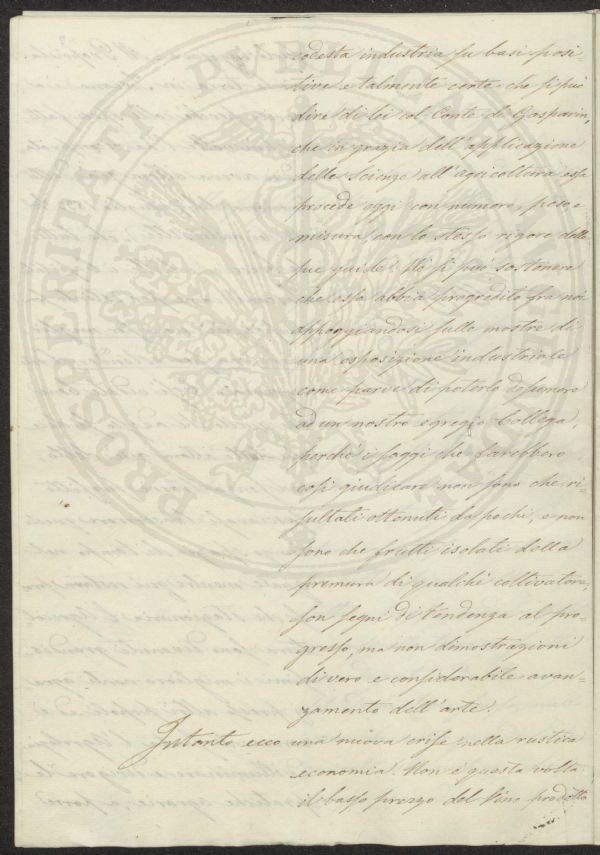 codesta industria su basi posi-
tive e talmente certe che si può
dire di lei col Conte di Gasparin,
che in grazia dell'applicazione
delle scienze all'agricoltura essa
procede oggi con numero, peso e
misura con lo stesso rigore delle
sue guide. Nè si può sostenere
che essa abbia progredito fra noi
appoggiandosi sulle mostre di
una esposizione industriale
come parve di poterlo desumere
ad un nostro egregio Collega,
perchè i saggi che farebbero
così giudicare non sono che ri-
sultati ottenuti da pochi, e non
sono che frutti isolati della
premura di qualche coltivatore,
son segni di tendenza al pro-
gresso, ma non dimostrazioni
di vero e considerabile avan-
zamento dell'arte.
Intanto ecco una nuova crise nella rustica
economia. Non è questa volta
il basso prezzo del Vino prodotto
PROSPERITATI PVBLICAE